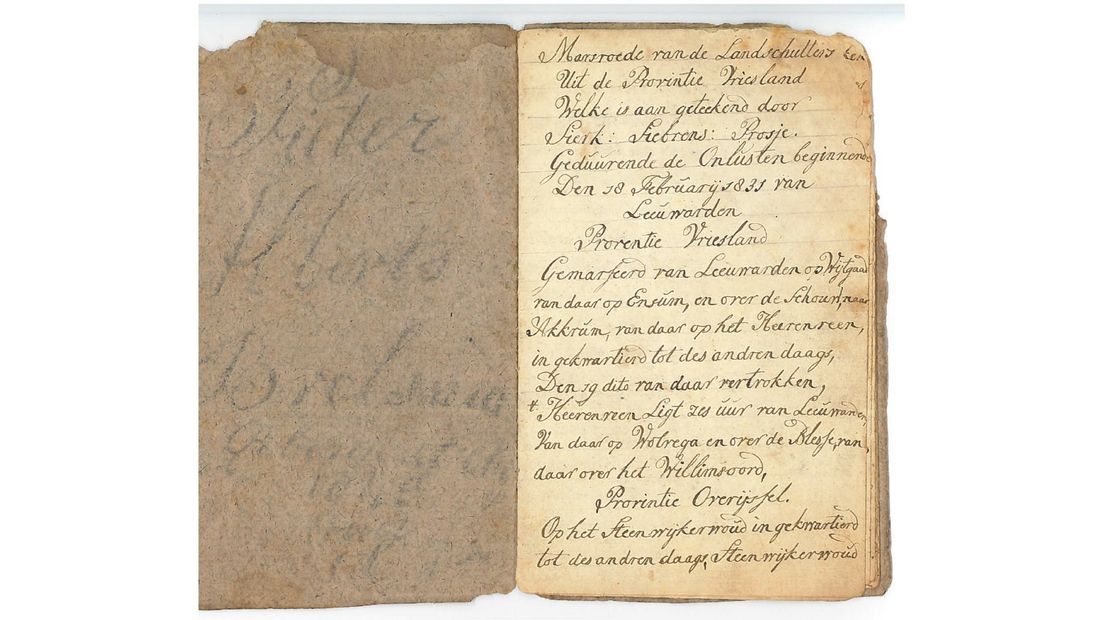 Pieter
Alberts
Marsroede van de Landschutters
Uit de Provintie Vriesland
Welke is aan geteekend door
Sierk: Siebrens: Prosje.
Geduurende de Onlusten beginnende
Den 18 Februarij 1831 van
Leeuwarden
Proventie Vriesland
Gemarseerd van Leeuwarden op Wijtgaad
van daar op Ensum, en over de Schouw, naar
Akkrum, van daar op het Heerenveen,
in gekwartierd tot des andren daags,
Den 19 dito van daar vertrokken,
't Heerenveen Ligt zes uur van Leeuwarden,
Van daar op Wolvega en over de Blesse, van
daar over het Willimsoord,
Provintie Overijssel.
Op het Steenwijkerwoud in gekwartierd
tot des andren daags, Steenwijkerwoud